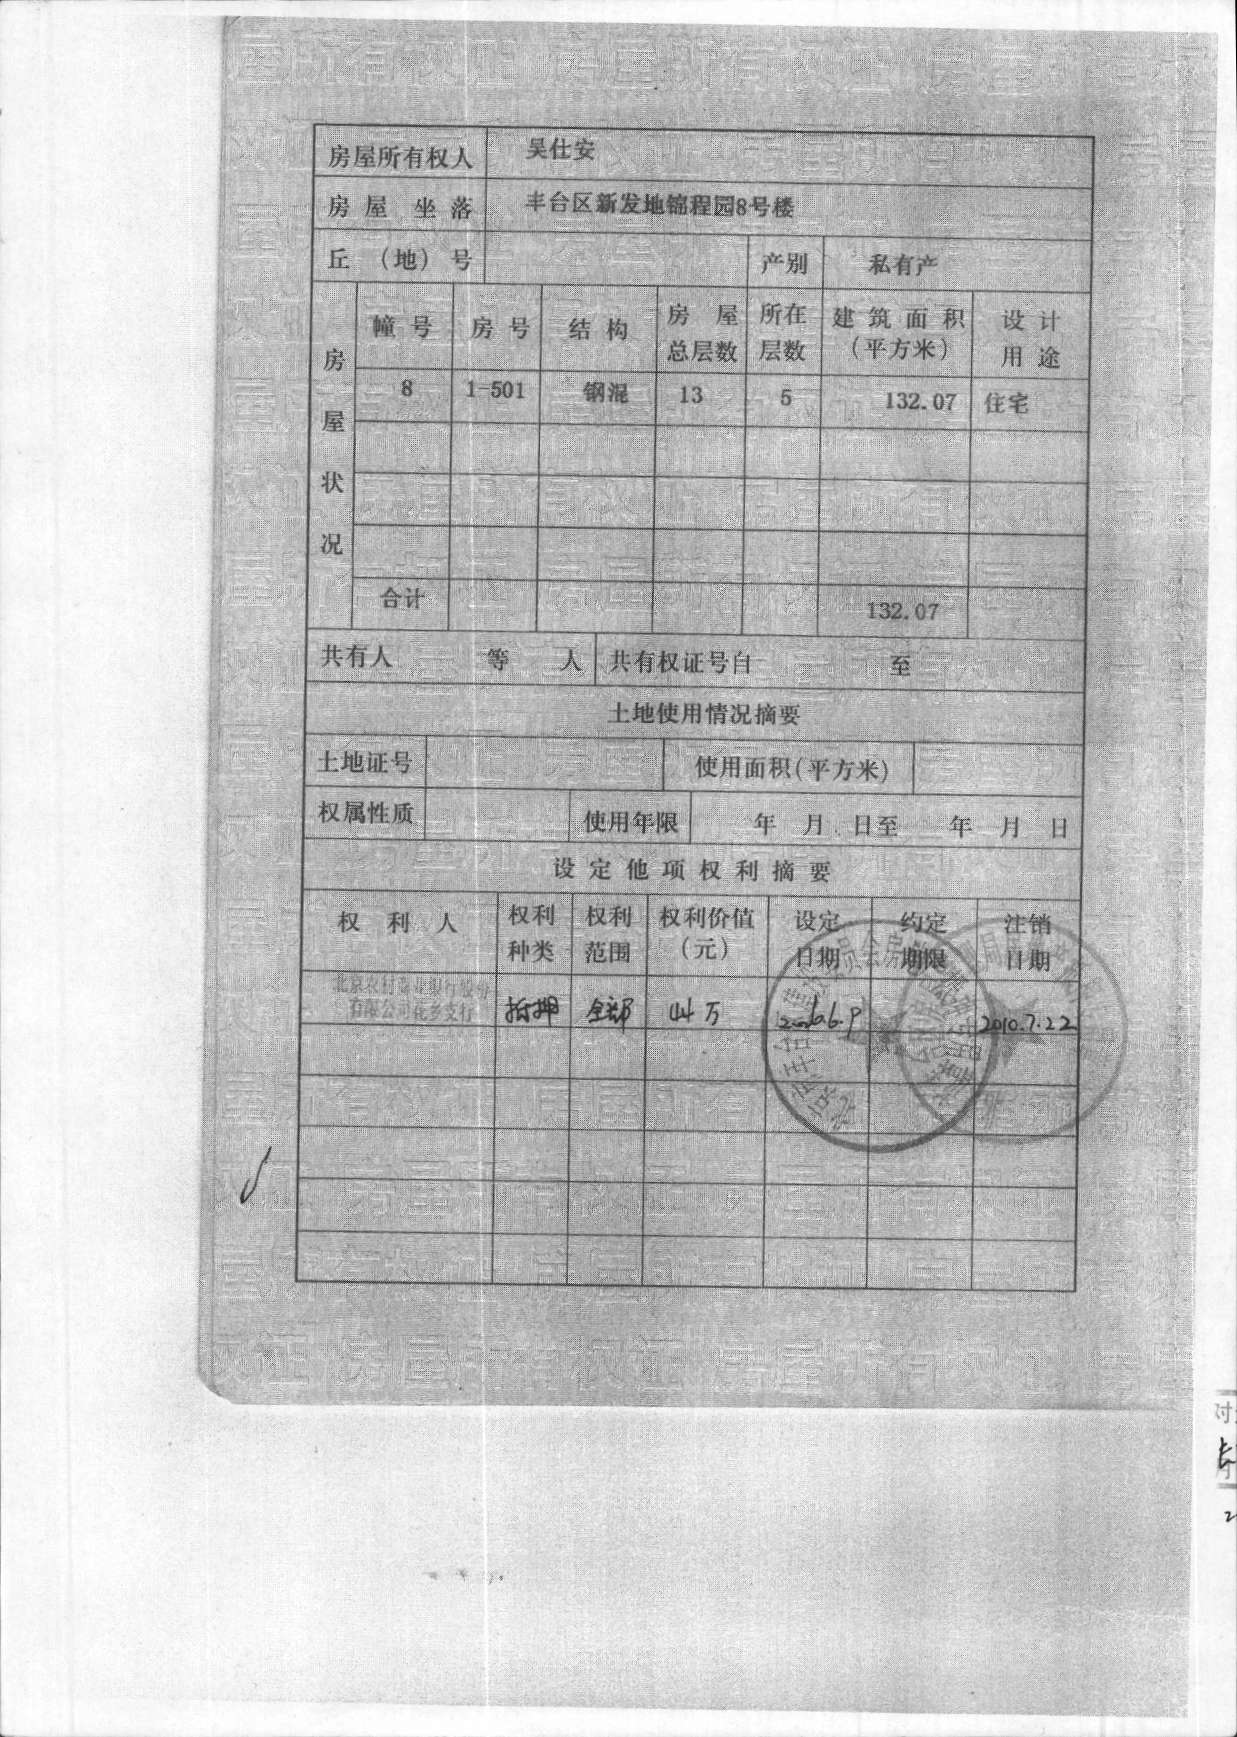 房屋所有权人 吴仕安
房屋坐落 丰台区新发地锦程园8号楼
丘（地）号 产别 私有产
房屋状况
幢号 房号 结构 房屋总层数 所在层数 建筑面积（平方米） 设计用途
8 1-501 钢混 13 5 132.07 住宅
合计 132.07
共有人 等 人 共有权证号自 至
土地使用情况摘要
土地证号 使用面积(平方米)
权属性质 使用年限 年 月 日至 年 月 日
设定他项权利摘要
权利人 权利种类 权利范围 权利价值（元） 设定日期 约定期限 注销日期
北京农村商业银行股份
有限公司花乡支行 抵押 全部 44万 2010.7.22